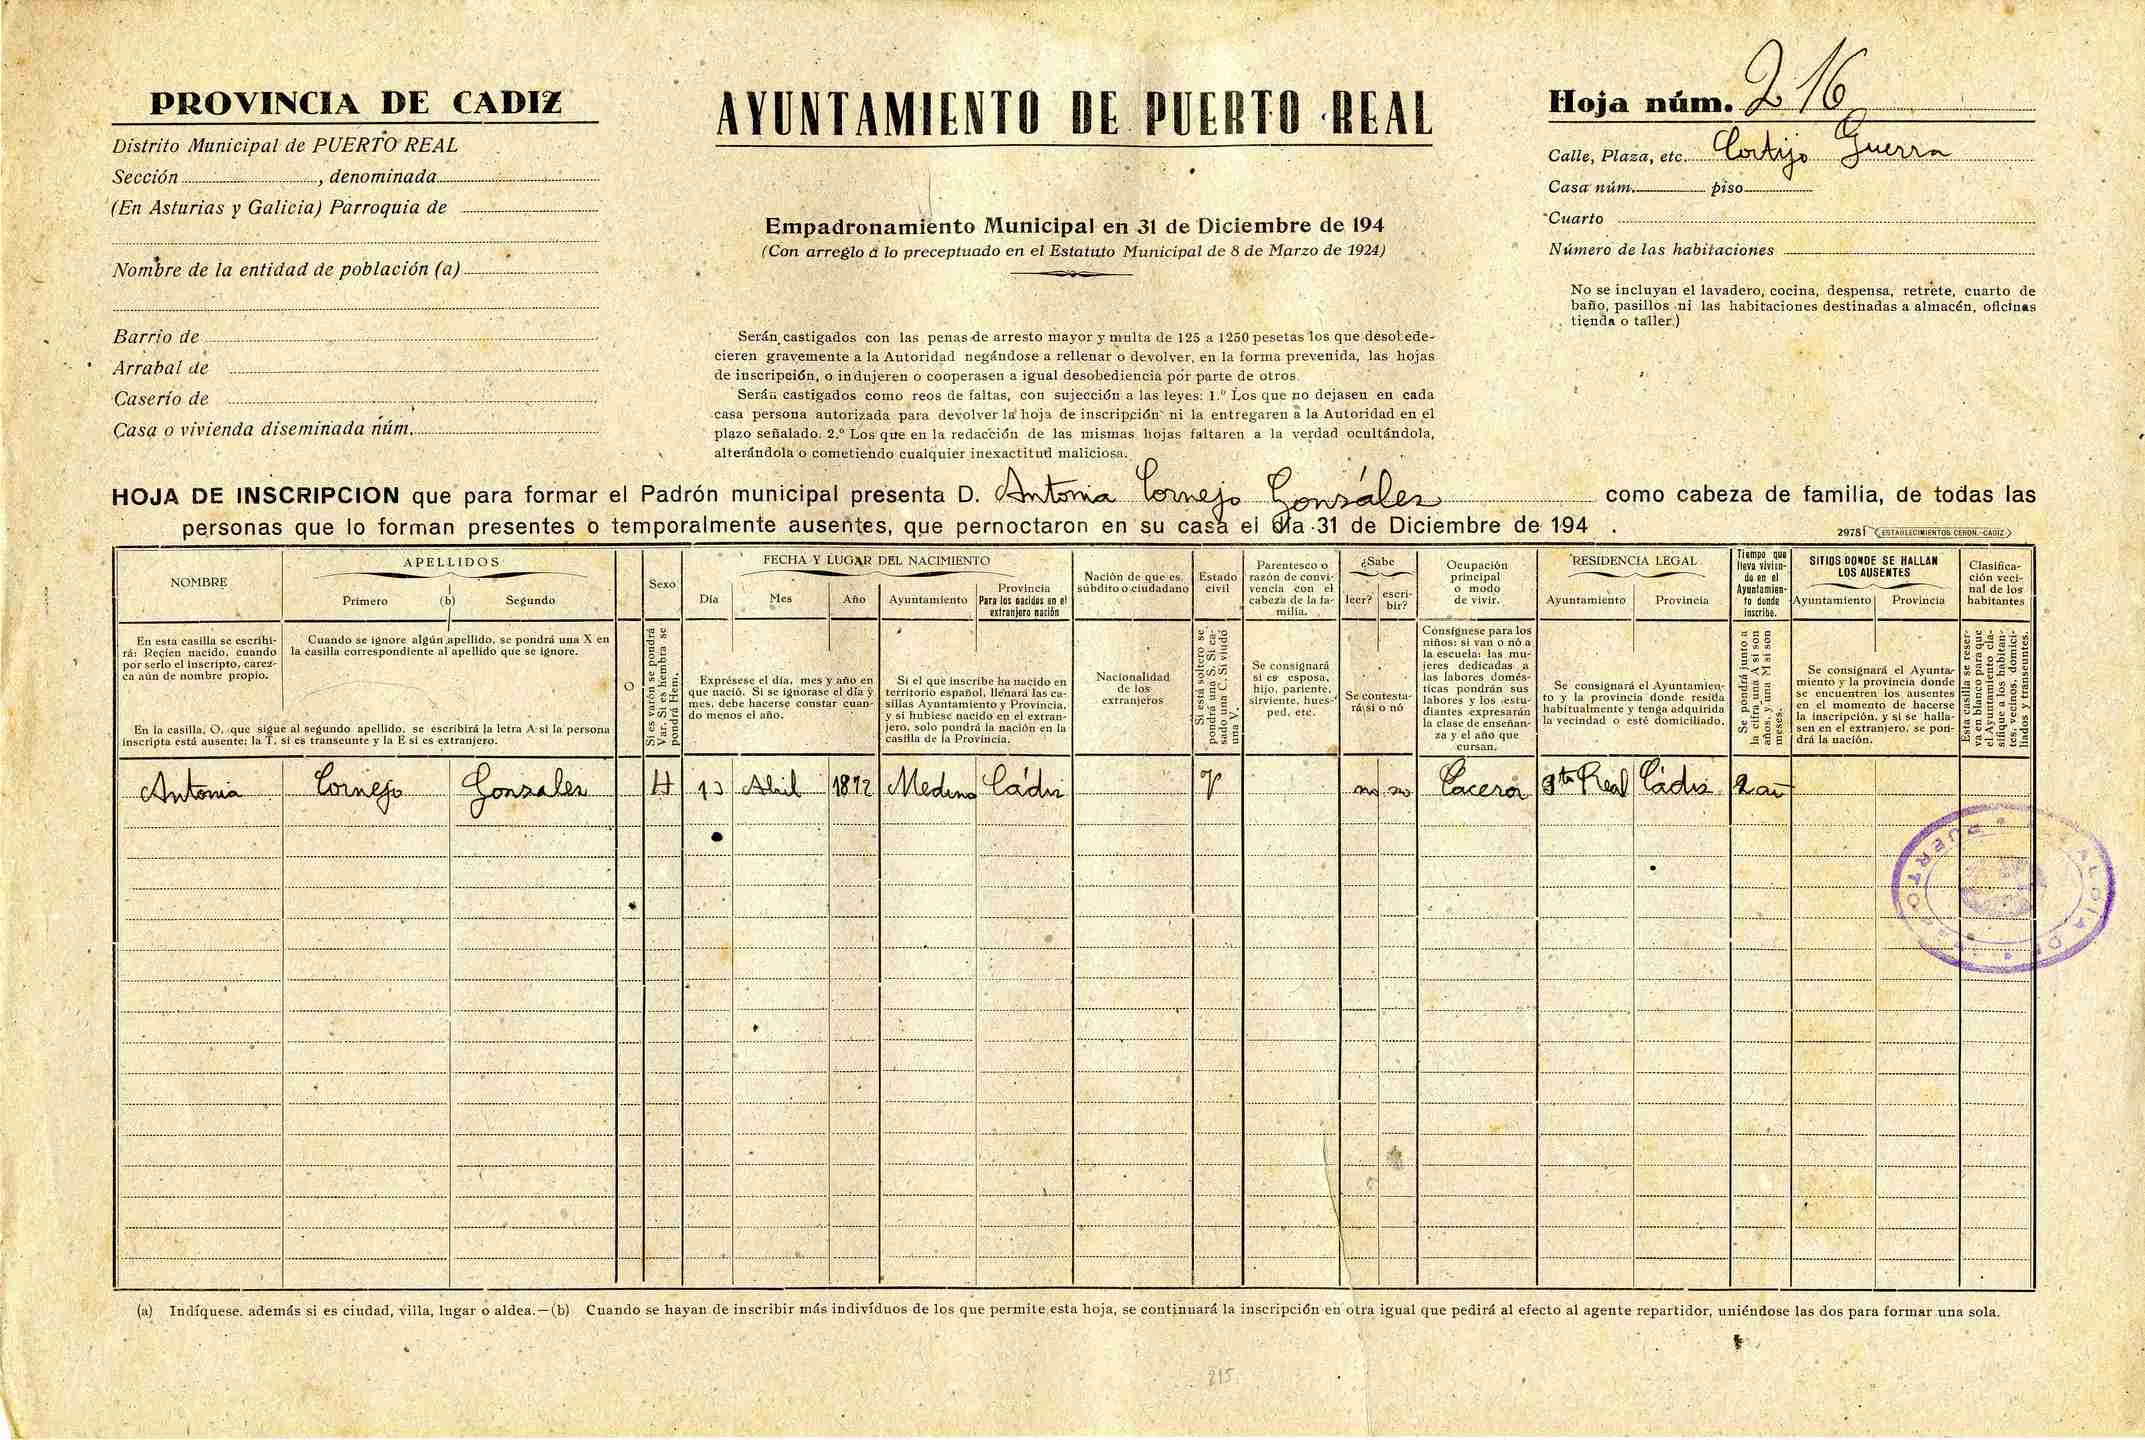 PROVINCIA DE CADIZ
Distrito Municipal de PUERTO REAL
Sección, denominada
(En Asturias y Galicia) Parroquia de
Nombre de la entidad de población (a)
Barrio de
Arrabal de
Caserío de
Casa o vivienda diseminada núm.
AYUNTAMIENTO DE PUERTO REAL
Empadronamiento Municipal en 31 de Diciembre de 194
(Con arreglo a lo preceptuado en el Estatuto Municipal de 8 de Marzo de 1924)
Serán castigados con las penas de arresto mayor y multa de 125 a 1250 pesetas los que desobede-
cieren gravemente a la Autoridad negándose a rellenar o devolver, en la forma prevenida, las hojas
de inscripción, o indujeren o cooperasen a igual desobediencia por parte de otros.
Serán castigados como reos de faltas, con sujección a las leyes: 1.º Los que no dejasen en cada
casa persona autorizada para devolver la hoja de inscripción ni la entregaren a la Autoridad en el
plazo señalado. 2.º Los que en la redacción de las mismas hojas faltaren a la verdad ocultándola,
alterándola o cometiendo cualquier inexactitud maliciosa.
Hoja núm. 216
Calle, Plaza, etc. Cortijo Guerra
Casa núm. piso
Cuarto
Número de las habitaciones
No se incluyan el lavadero, cocina, despensa, retrete, cuarto de
baño, pasillos ni las habitaciones destinadas a almacén, oficinas
tienda o taller.)
HOJA DE INSCRIPCION que para formar el Padrón municipal presenta D. Antonia Cornejo Gonzáles como cabeza de familia, de todas las
personas que lo forman presentes o temporalmente ausentes, que pernoctaron en su casa el día 31 de Diciembre de 194 .
29781 ESTABLECIMIENTOS CERON.-CADIZ
NOMBRE
APELLIDOS
Primero (b) Segundo
Sexo
FECHA Y LUGAR DEL NACIMIENTO
Día Mes Año Ayuntamiento
Provincia
Para los nacidos en el
extranjero nación
Nación de que es
súbdito o ciudadano
Estado
civil
Parentesco o
razón de convi-
vencia con el
cabeza de la fa-
milia.
¿Sabe
leer? escri-
bir?
Ocupación
principal
o modo
de vivir.
RESIDENCIA LEGAL
Ayuntamiento Provincia
Tiempo que
lleva vivien-
do en el
Ayuntamien-
to donde
inscribe.
SITIOS DONDE SE HALLAN
LOS AUSENTES
Ayuntamiento Provincia
Clasifica-
ción veci-
nal de los
habitantes
En esta casilla se escribi-
rá: Recien nacido, cuando
por serlo el inscripto, carez-
ca aún de nombre propio.
Cuando se ignore algún apellido, se pondrá una X en
la casilla correspondiente al apellido que se ignore.
En la casilla, O. que sigue al segundo apellido, se escribirá la letra A si la persona
inscripta está ausente; la T, si es transeunte y la E si es extranjero.
O
Si es varón se pondrá
Var. Si es hembra se
pondrá Hem.
Exprésese el día, mes y año en
que nació. Si se ignorase el día y
mes, debe hacerse constar cuan-
do menos el año.
Si el que inscribe ha nacido en
territorio español, llenará las ca-
sillas Ayuntamiento y Provincia,
y si hubiese nacido en el extran-
jero, solo pondrá la nación en la
casilla de la Provincia.
Nacionalidad
de los
extranjeros
Si está soltero se
pondrá una S. Si ca-
sado una C. Si viudo
una V.
Se consignará
si es esposa,
hijo, pariente,
sirviente, hues-
ped, etc.
Se contesta-
rá si o nó
Consígnese para los
niños: si van o nó a
la escuela: las mu-
jeres dedicadas a
las labores domés-
ticas pondrán sus
labores y los estu-
diantes expresarán
la clase de enseñan-
za y el año que
cursan.
Se consignará el Ayuntamien-
to y la provincia donde resida
habitualmente y tenga adquirida
la vecindad o esté domiciliado.
Se pondrá junto a
la cifra una A si son
años, y una M si son
meses.
Se consignará el Ayunta-
miento y la provincia donde
se encuentren los ausentes
en el momento de hacerse
la inscripción, y si se halla-
sen en el extranjero, se pon-
drá la nación.
Esta casilla se reser-
va en blanco para que
el Ayuntamiento cla-
sifique a los habitan-
tes, vecinos, domici-
liados y transeuntes.
Antonia Cornejo Gonzales H 13 Abril 1872 Medina Cádiz V no no Pto Real Cádiz 2 añ
ALCALDIA DE PUERTO REAL
(a) Indíquese. además si es ciudad, villa, lugar o aldea.—(b) Cuando se hayan de inscribir más indivíduos de los que permite esta hoja, se continuará la inscripción en otra igual que pedirá al efecto al agente repartidor, uniéndose las dos para formar una sola.
215